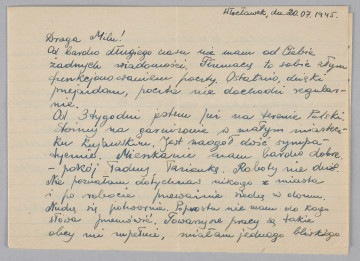 Włocławek, dn 20.07.1945.
Droga Milu!
Od bardzo długiego czasu nie mam od Ciebie
żadnych wiadomości. Tłumaczę to sobie złym
funkcjonowaniem poczty. Ostatnio, dzięki
przejazdom, poczta nie dochodzi regular-
nie.
Od 3 tygodni jestem już na terenie Polski
na garnizonie w małym miastecz-
ku Kujawskim. Jest naogół dość sympa-
tycznie. Mieszkanie mam bardzo dobre
- pokój ładny, Roboty nie dużo.
Nie poznałam dotychczas nikogo z miasta
i po robocie przeważnie siedzę w domu.
Nudzę się potwornie. Poprostu nie mam do kogo
słowa przemówić. Towarzysze pracy są tacy
obcy mi zupełnie, miałam jednego bliskiego